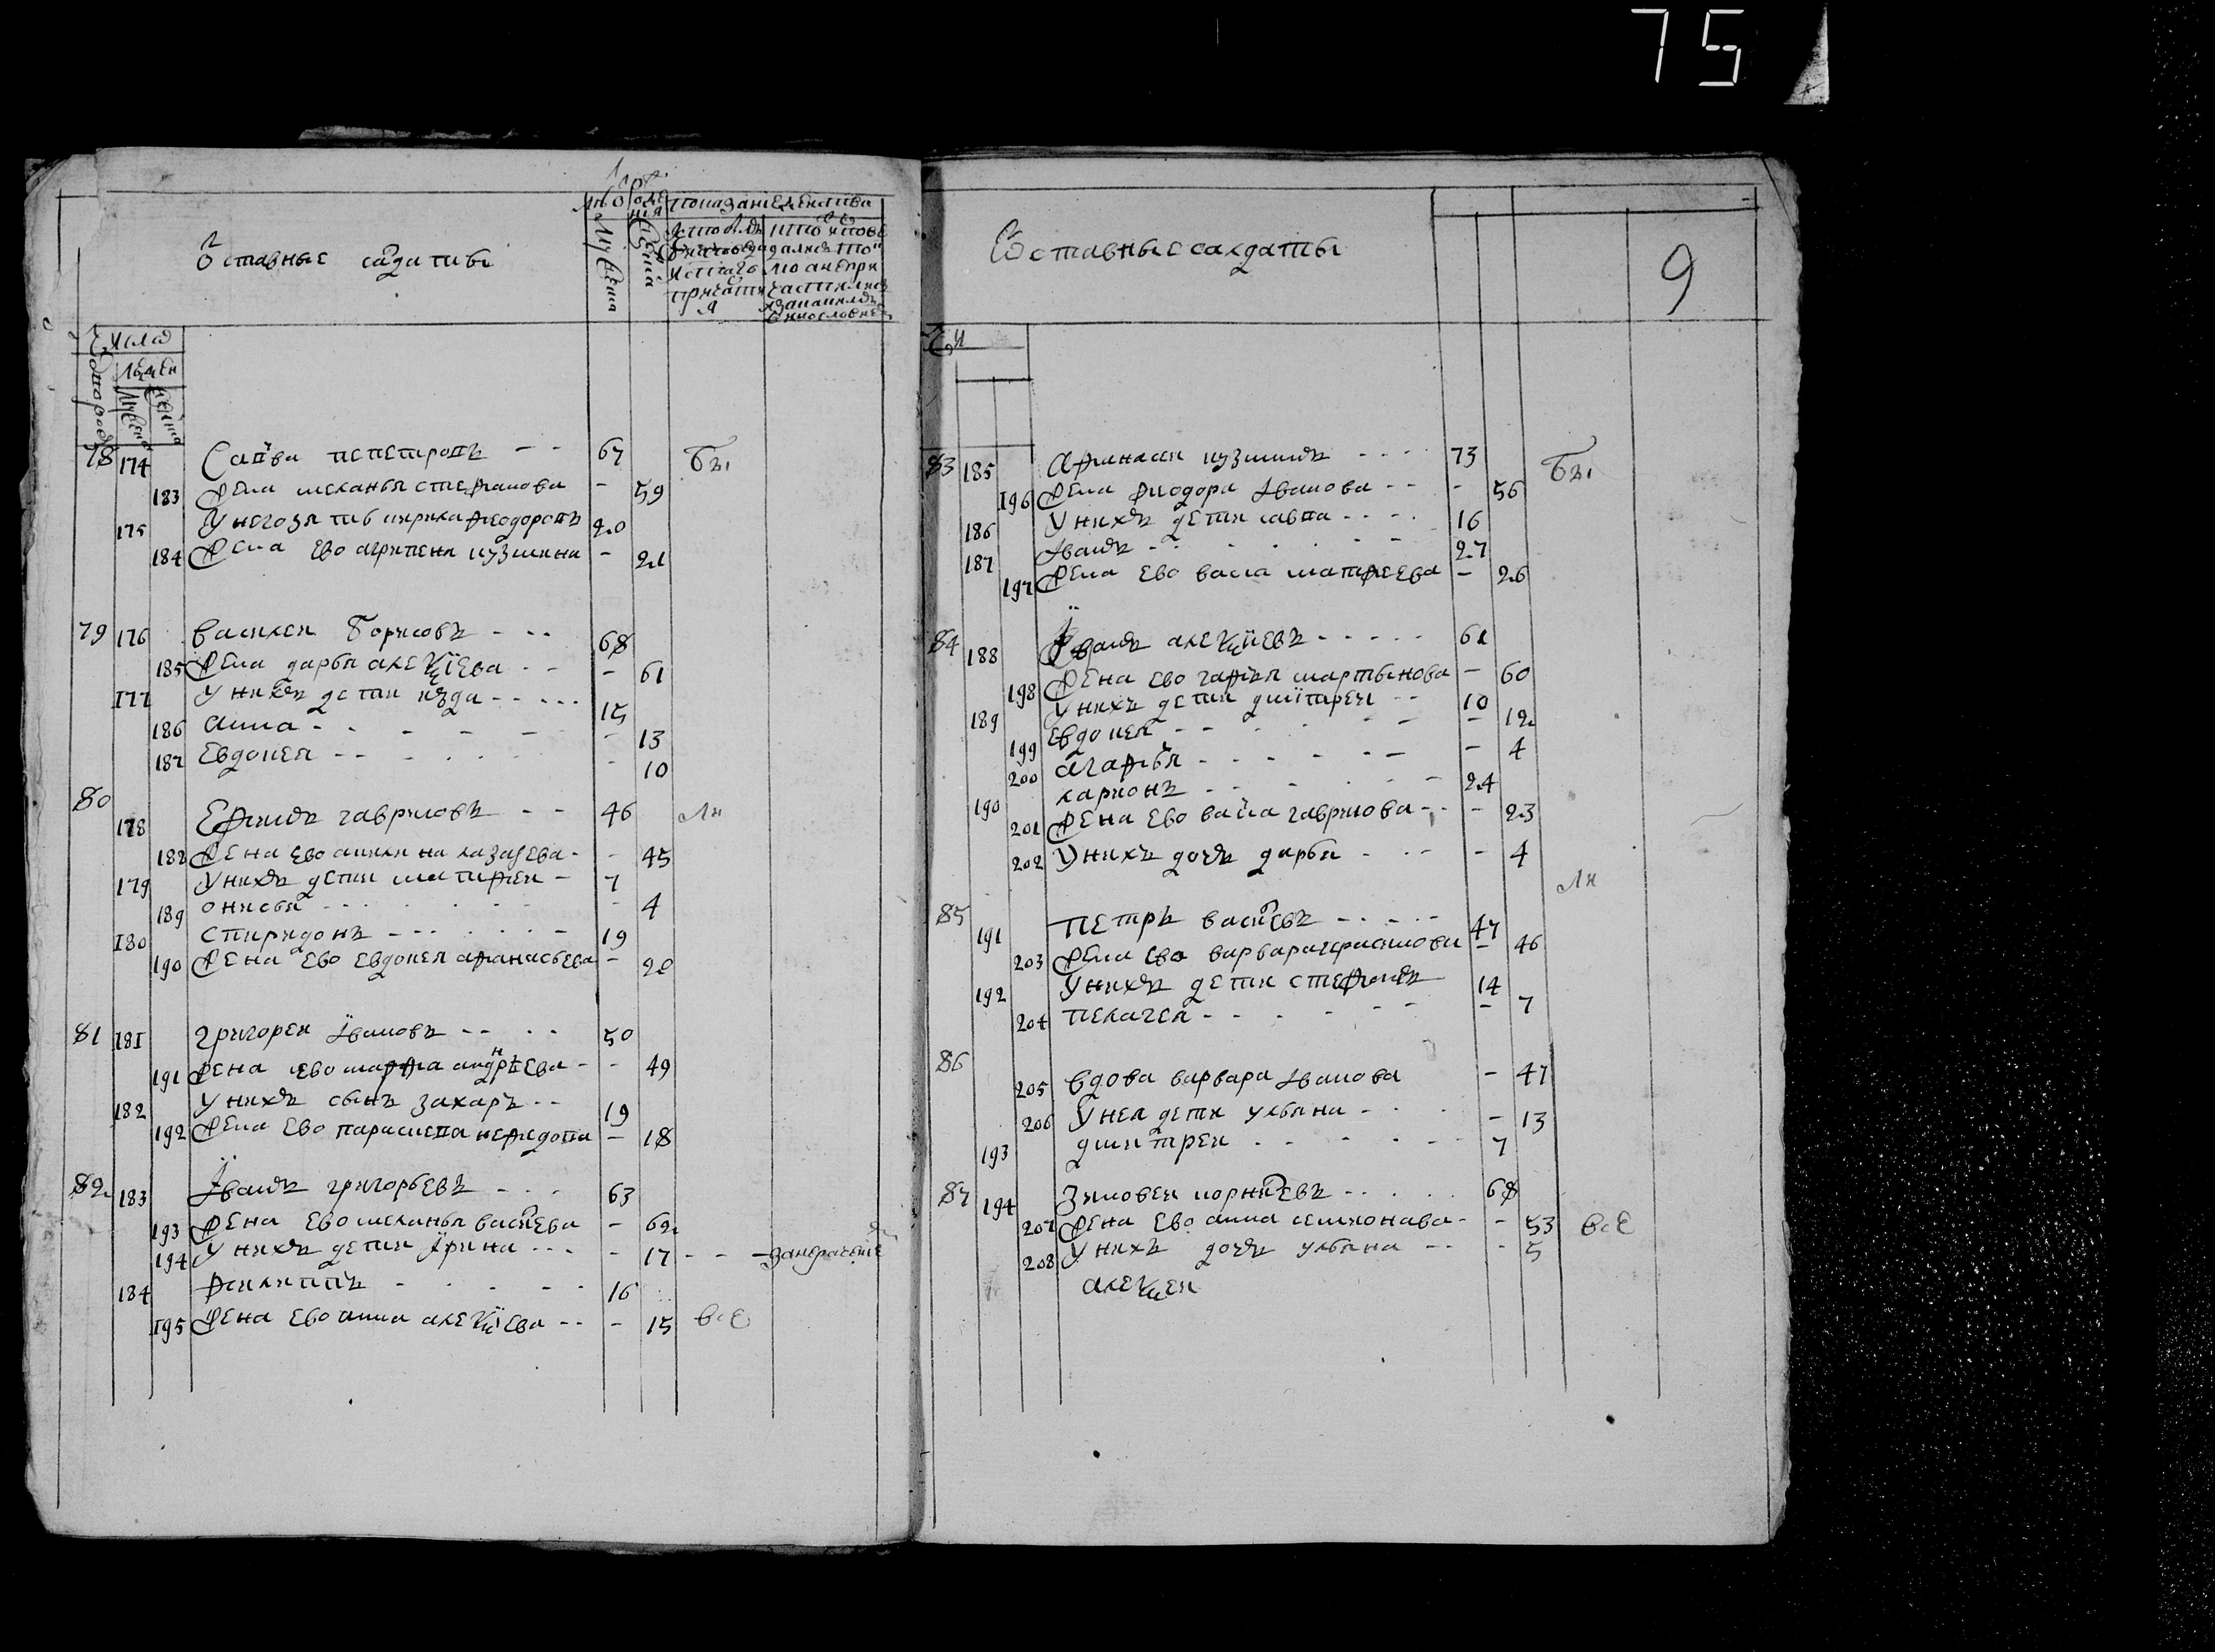 75
Отставные салдаты
Числа
Людей
78 174 Савва Петровъ - - 67 Бы
183 Жена Меланья Стефанова - 59
175 У него зять Кирила Феодоровъ 20
184 Жена ево Агрипена Кузмина - 21
79 176 Василеи Борисовъ - - - 68
185 Жена Дарья Алексиева - - - 61
177 У нихъ дети Кузма - - - - 15
186 Анна - - - - - - 13
187 Евдокея - - - - - - 10
80
178 Ефимъ Гавриловъ - - 46 ли
188 Жена ево Акилина Лазарева - - 45
179 У нихъ дети Матфеи - 7
189 Онисья - - - - - 4
180 Спиридонъ - - - - - 19
190 Жена ево Евдокея Афанасьева - 20
81 181 Григореи Ивановъ - - - - 50
191 Жена ево Марфа Андрѣева - - 49
182 У нихъ сынъ Захаръ - - 19
192 Жена ево Парасковия Нефедова - 18
82 183 Иванъ Григорьевъ - - - 63
193 Жена ево Меланья Васильева - 62
194 У нихъ дети Ирина - - - - 17 - -
184 Филиппъ - - - - - 16
195 Жена ево Анна Алексиева - - - 15 все
Отставные салдаты
9
83 185 Афанасеи Кузминъ - - - - 73 Бы
196 Жена Феодора Иванова - - - 56
186 У нихъ дети Савва - - - - 16
187 Иванъ - - - - - - 27
197 Жена ево Васса Матфеева - 26
84 188 Иванъ Алексиевъ - - - - - 61
198 Жена ево Агафья Мартынова - 60
189 У нихъ дети Дмитреи - - 10
199 Евдокея - - - - - - 12
200 Агафья - - - - - - - 4
190 Ларионъ - - - - - 24
201 Жена ево Васса Гаврилова - - - 23
202 У нихъ дочь Дарья - - - - 4
ли
85 191 Петръ Васильевъ - - - - - 47
203 Жена ево Варвара Герасимова - 46
192 У нихъ дети Стефанъ 14
204 Пелагея - - - - - - 7
86
205 Вдова Варвара Иванова - 47
206 У нея дети Ульяна - - - - 13
193 Дмитреи - - - - - 7
87 194 Зиновеи Корнильевъ - - - - - 68
207 Жена ево Анна Семионава - - 53 все
208 У нихъ дочь Ульяна - - - 5
Алексеи